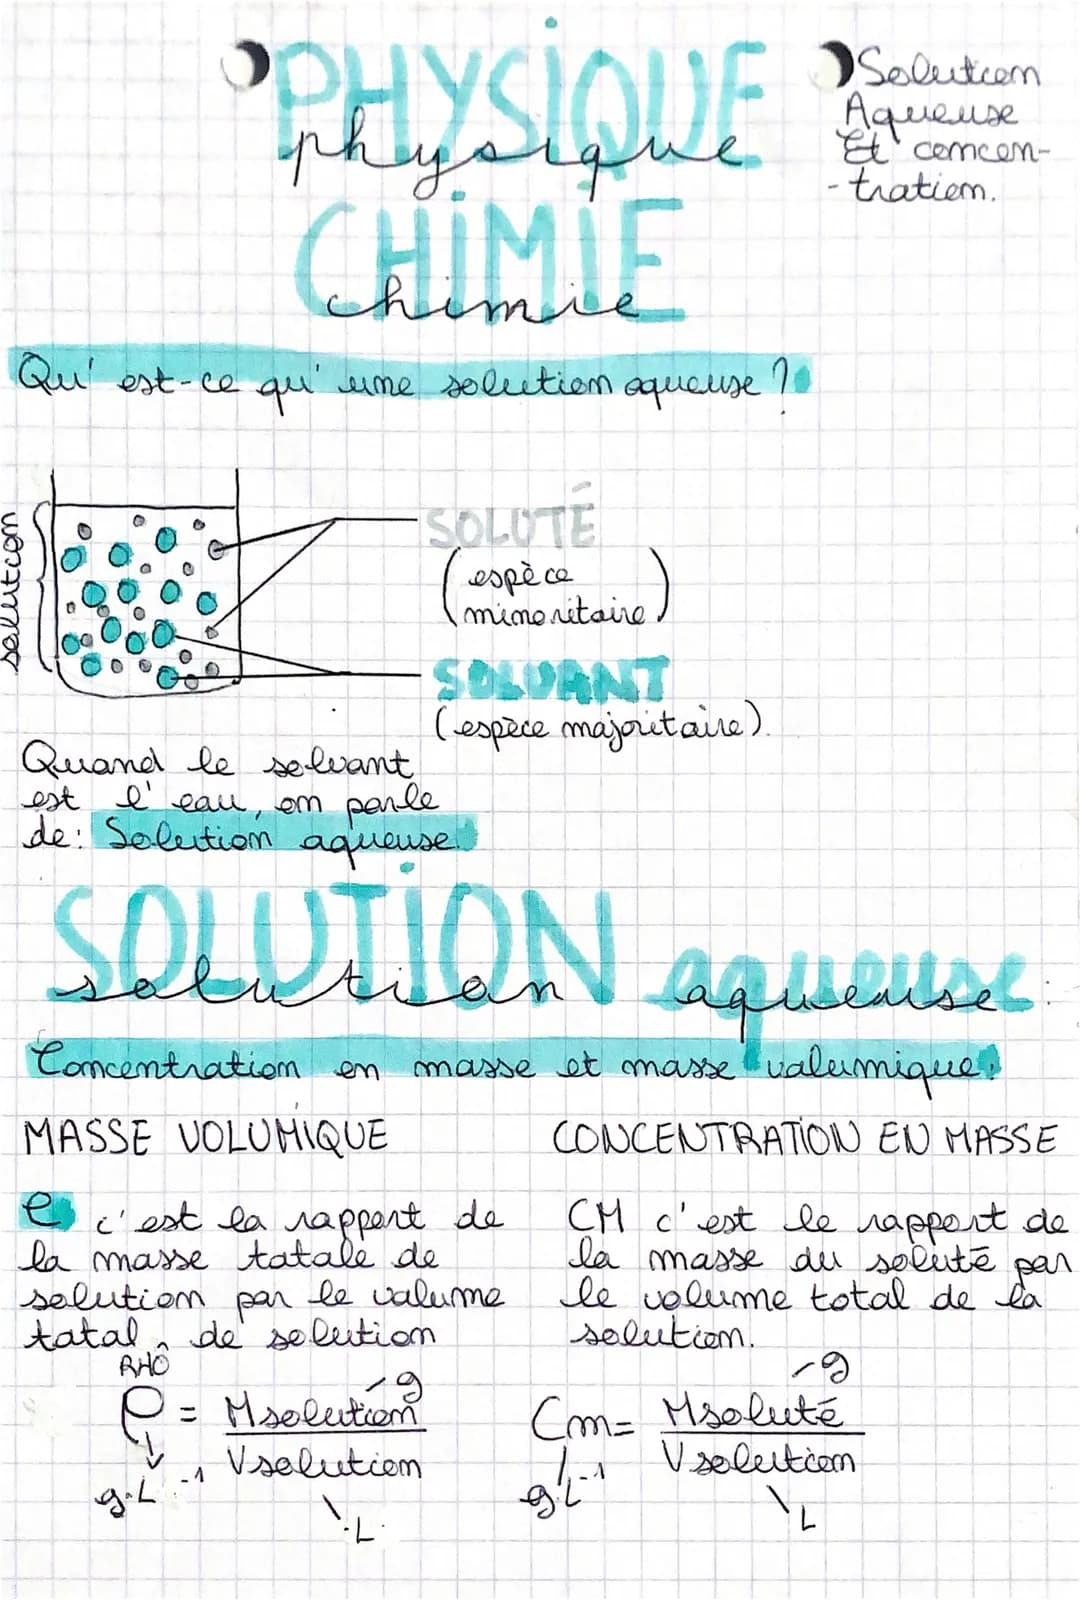 PHYSIQUE
physique
CHIMIE
chimie
Solution
Aqueuse
Et concen-
-tration.
Qu'est-ce qu'une solution aqueuse ?
solution
SOLUTÉ
(espèce
minoritaire)
SOLVANT
(espèce majoritaire).
Quand le solvant
est l'eau, on parle
de: Solution aqueuse.
SOLUTION aqueuse
solution aqueuse
Concentration en masse et masse volumique.
MASSE VOLUMIQUE
ρ c'est la rapport de
la masse totale de
solution par le volume
total de solution
RHÔ
ρ = Msolution g
Vsolution
g.L-1
L
CONCENTRATION EN MASSE
CM c'est le rapport de
la masse du soluté par
le volume total de la
solution.
Cm= Msoluté g
Vsolution
g.L-1
L